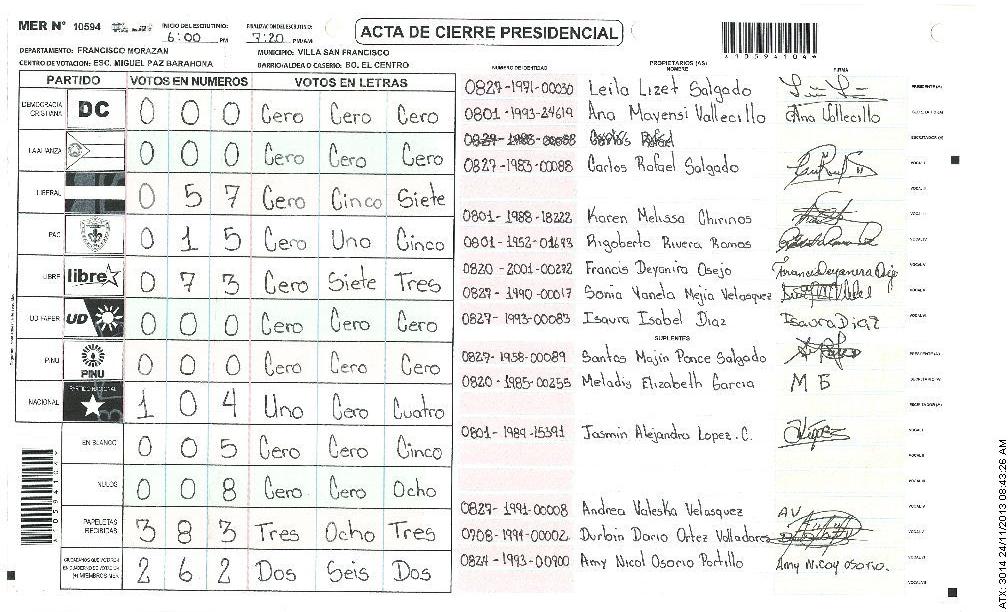 MER N° 10594
INICIO DEL ESCRUTINIO: 6:00 PM
FINALIZACION DEL ESCRUTINIO: 7:20 PM/AM
ACTA DE CIERRE PRESIDENCIAL
DEPARTAMENTO: FRANCISCO MORAZAN
MUNICIPIO: VILLA SAN FRANCISCO
CENTRO DE VOTACION: ESC. MIGUEL PAZ BARAHONA
BARRIO/ALDEA O CASERIO: BO. EL CENTRO
PARTIDO VOTOS EN NUMEROS VOTOS EN LETRAS
DEMOCRACIA CRISTIANA DC 0 0 0 Cero Cero Cero
LA ALIANZA 0 0 0 Cero Cero Cero
LIBERAL 0 5 7 Cero Cinco Siete
PAC 0 1 5 Cero Uno Cinco
LIBRE libre 0 7 3 Cero Siete Tres
UD FAPER UD 0 0 0 Cero Cero Cero
PINU PINU 0 0 0 Cero Cero Cero
NACIONAL PARTIDO NACIONAL 1 0 4 Uno Cero Cuatro
EN BLANCO 0 0 5 Cero Cero Cinco
NULOS 0 0 8 Cero Cero Ocho
PAPELETAS RECIBIDAS 3 8 3 Tres Ocho Tres
2 6 2 Dos Seis Dos
NUMERO DE IDENTIDAD PROPIETARIOS (AS) NOMBRE FIRMA
0827-1971-00030 Leila Lizet Salgado PRESIDENTE(A)
0801-1993-24619 Ana Mayensi Vallecillo Ana Vallecillo
0827-1983-00088 Carlos Rafael
0827-1983-00088 Carlos Rafael Salgado
0801-1988-18222 Karen Melissa Chirinos
0801-1952-01693 Rigoberto Rivera Ramos
0820-2001-00272 Francis Deyanira Osejo
0827-1990-00017 Sonia Vanela Mejia Velasquez
0827-1993-00083 Isaura Isabel Diaz Isaura Diaz
SUPLENTES
0827-1958-00089 Santos Majin Ponce Salgado PRESIDENTE(A)
0820-1985-00255 Meladis Elizabeth Garcia M E
0801-1989-15391 Jasmin Alejandra Lopez. C.
0827-1991-00008 Andrea Valeska Velasquez AV
0708-1991-00002 Durbin Dario Ortez Valladares
0824-1993-00900 Amy Nicol Osorio Portillo Amy Nicoy Osorio.
ATX: 3014 24/11/2013 08:43:26 AM